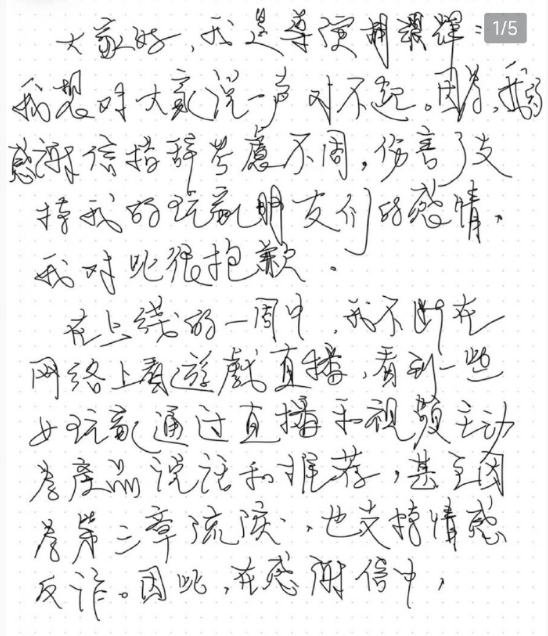 大家好，我是導演胡漢輝：
1/5
我想对大家说一声对不起。因为，我的
感谢信措辞考慮不周，伤害了支
持我的玩家朋友们的感情，
我对此很抱歉。
在上线的一周中，我不断在
网络上看遊戲直播，看到一些
女玩家通过直播和视频主动
為產品说话和推荐，甚至因
為第三章流淚，也支持情感
反诈。因此，在感謝信中，